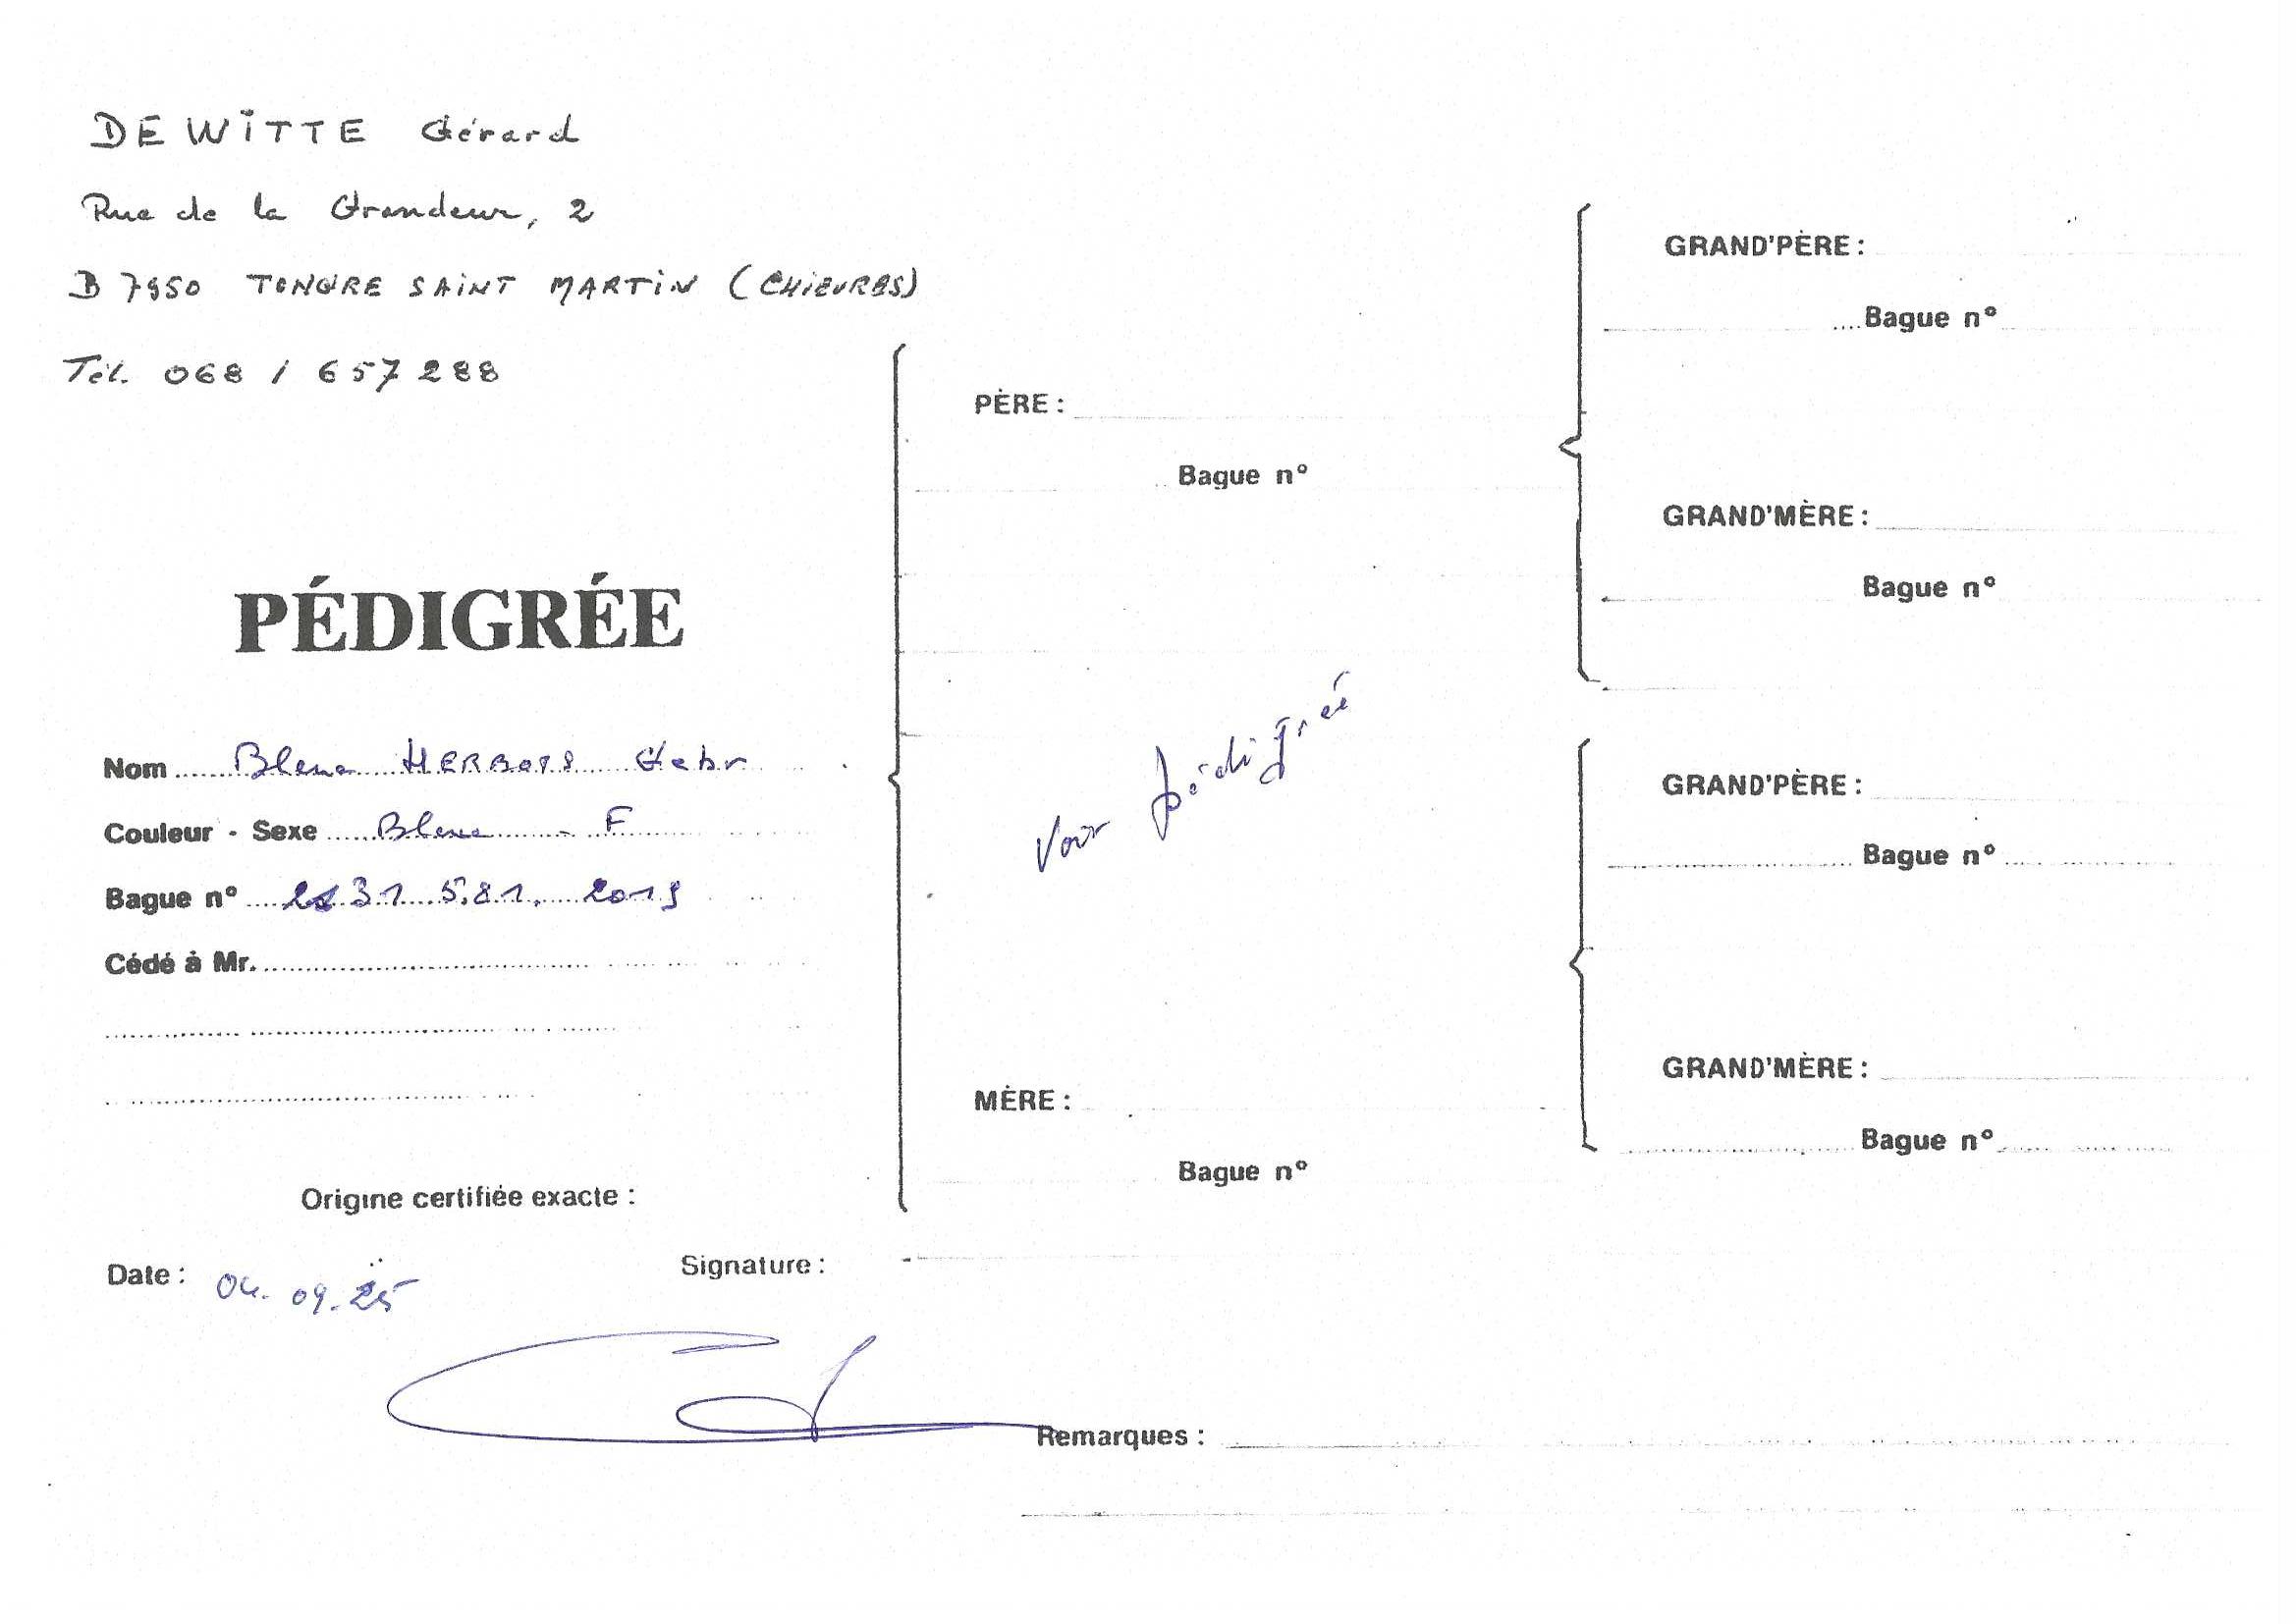 DEWITTE Gérard
Rue de la Grandeur, 2
B 7950 TONGRE SAINT MARTIN (CHIEVRES)
Tél. 068 / 657 288
PÉDIGRÉE
Nom Bleue HERBOTS Gebr
Couleur - Sexe Bleue - F
Bague n° 2131581. 2019
Cédé à Mr.
Origine certifiée exacte :
Date : 04. 09. 25
Signature :
PÈRE :
Bague n°
Voir pédigrée
MÈRE :
Bague n°
GRAND'PÈRE :
Bague n°
GRAND'MÈRE :
Bague n°
GRAND'PÈRE :
Bague n°
GRAND'MÈRE :
Bague n°
Remarques :